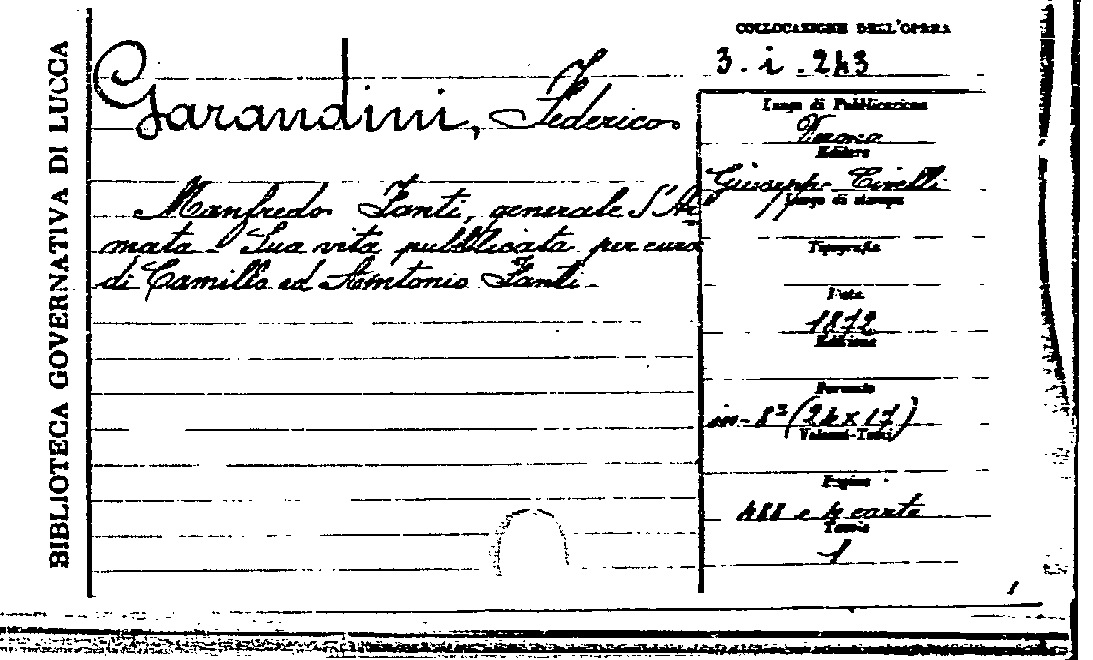 BIBLIOTECA GOVERNATIVA DI LUCCA
COLLOCAZIONE DELL'OPERA
3. i. 243
Garandini, Federico
Manfredo Fanti, generale d'Ar
mata - Sua vita pubblicata per cura
di Camillo ed Amtonio Fanti.
Luogo di Pubblicazione
Verona
Editore
Giuseppe Civelli
Luogo di stampa
Tipografia
Data
1872
Edizione
Formato
in-8° (24 x 17)
Volumi-Tomi
Pagine
488 e 4 carte
Tavole
1